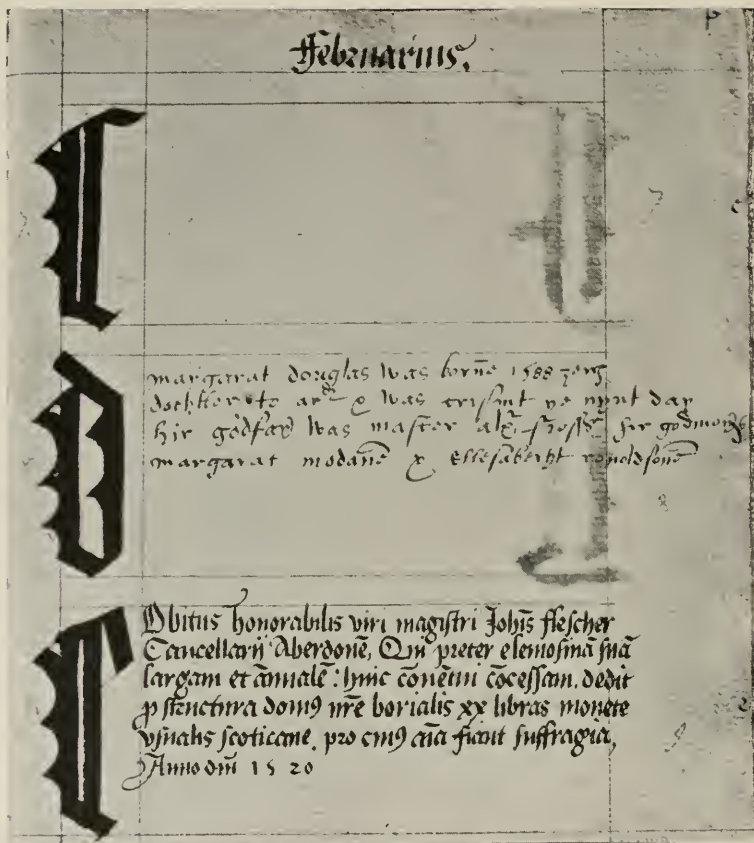 ffebruarius.
margarat douglas was borñe 1588 zers
dochtter to arᵈ & was crisint ye nynt day
hir godfar was master alxʳ hir godmoirs
margarat modañe & Ellesabetht ronoldsoñe
Obitus honorabilis viri magistri Johīs flescher
Cancellarij Aberdonē, Qui preter elemosinā suā
largam et ānualē : huic cōuētui cōcessam, dedit
p structura domꝰ nr̄e borialis xx libras monete
vsualis scoticane, pro cuiꝰ aīa fiant suffragia,
Anno dnī 1520